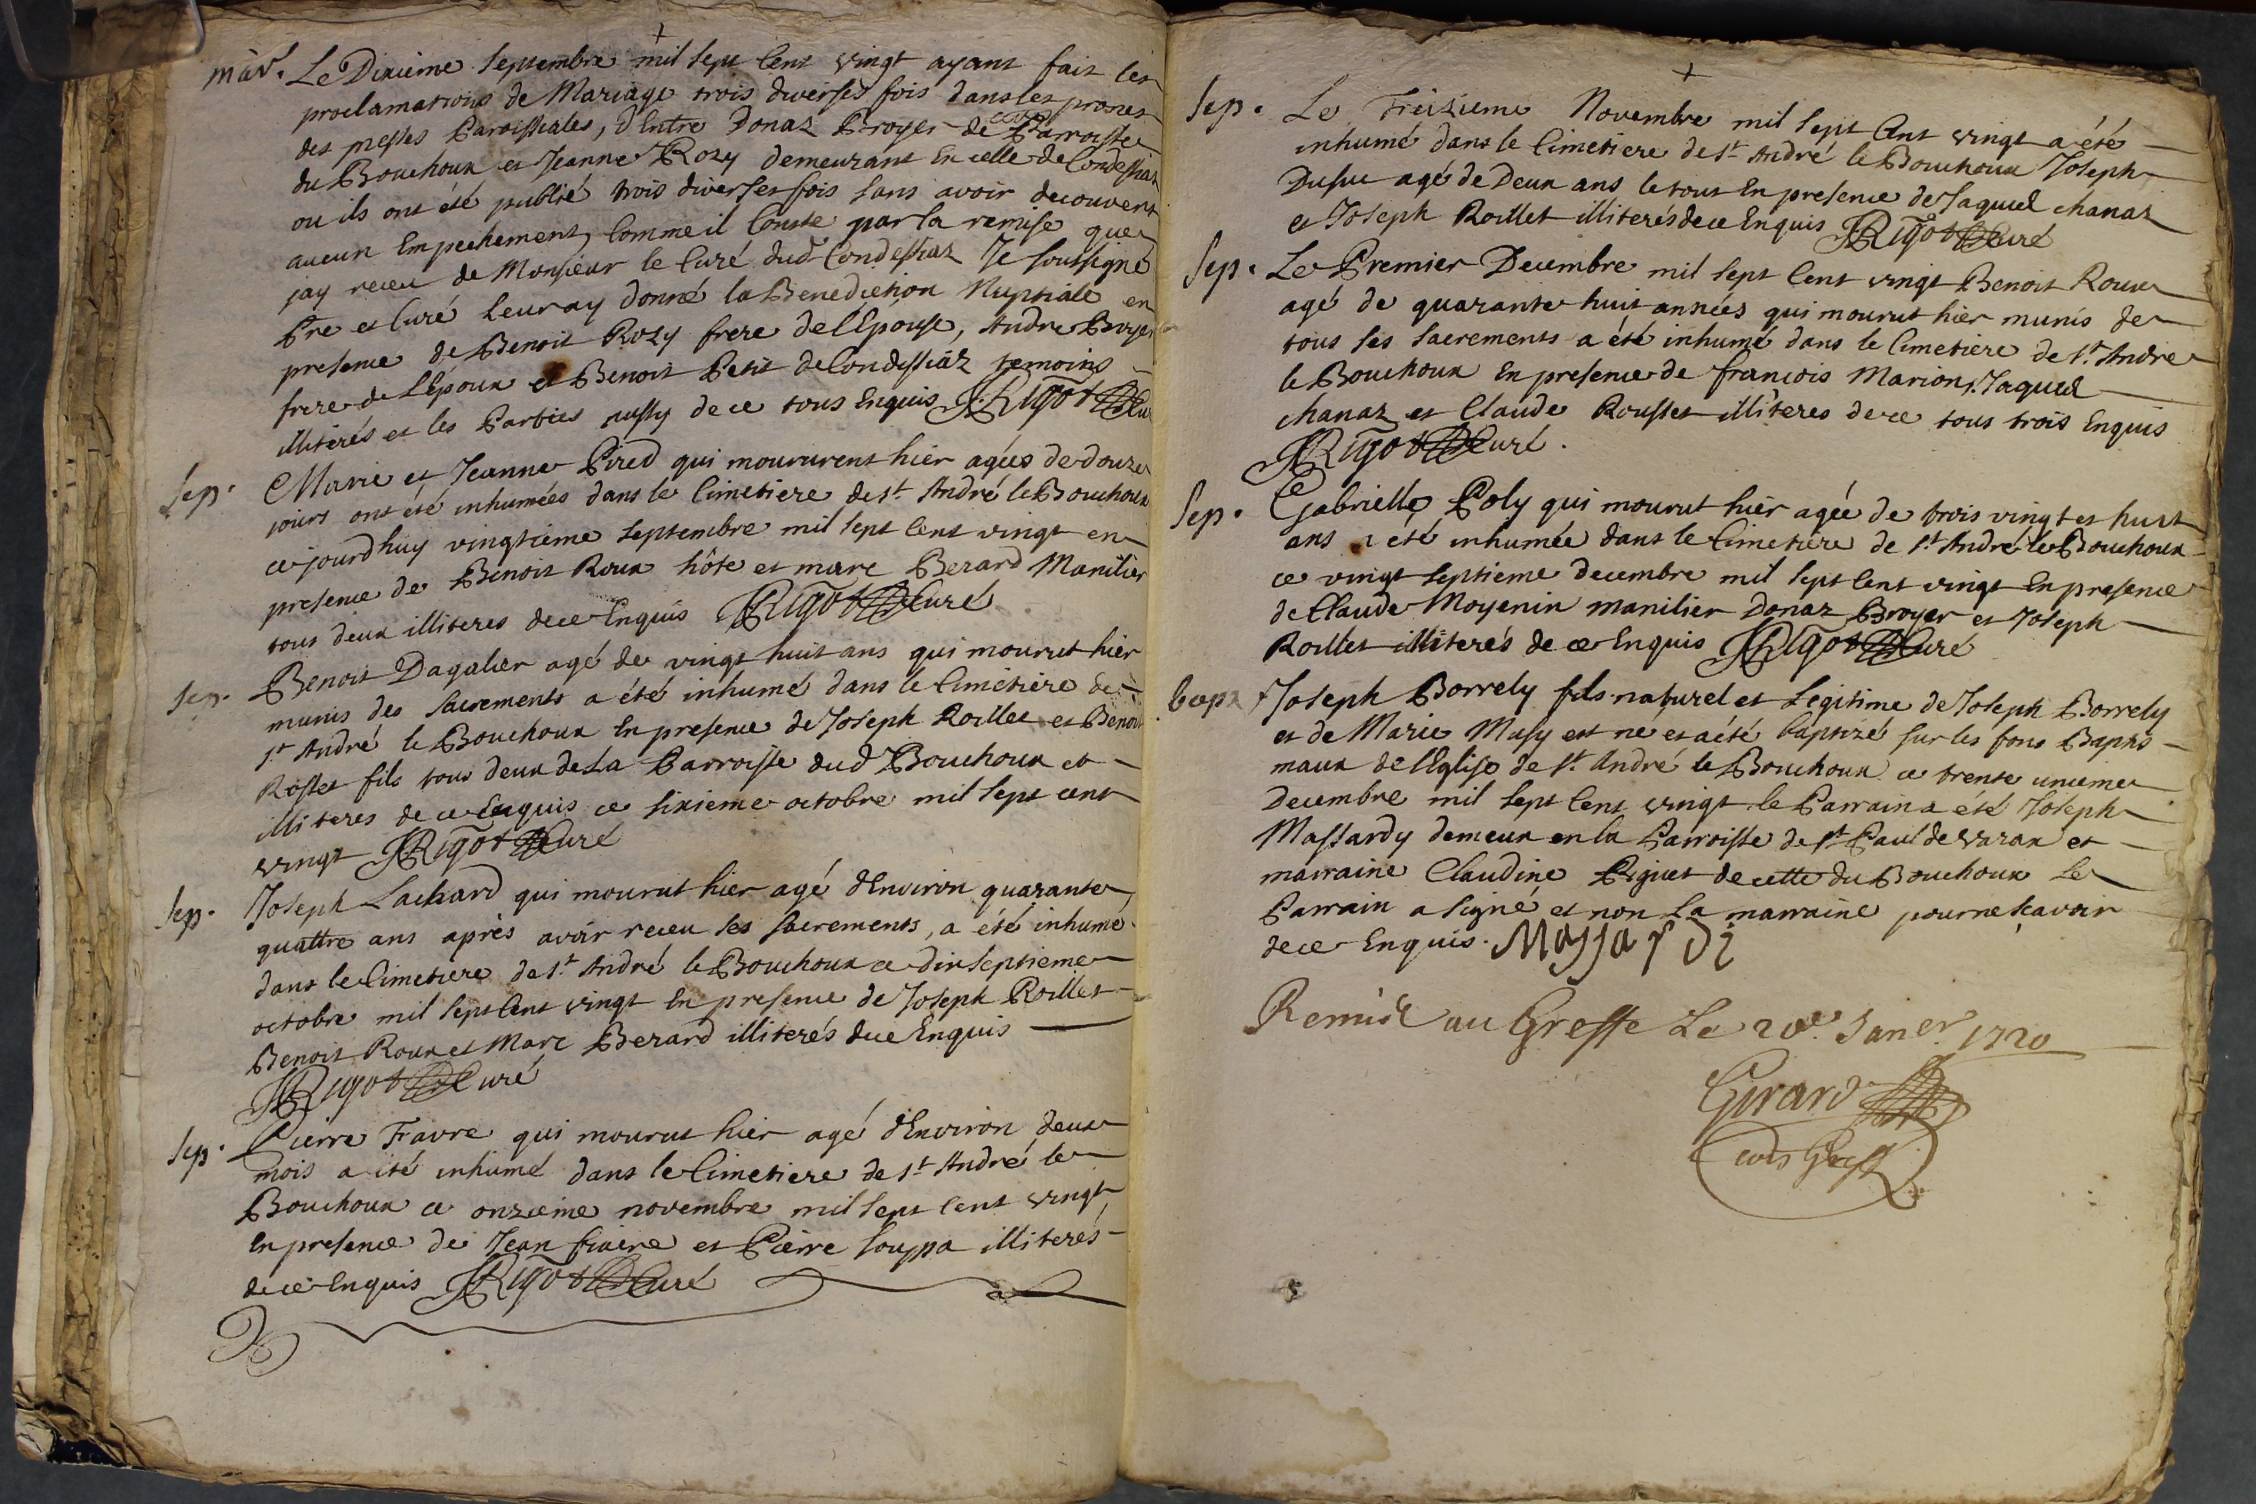 mar. Le Dixième Septembre mil sept Cent vingt ayant fait les
proclamations de Mariage trois diverses fois dans les prones
des messes Paroissiales, d'Entre Donaz Broyer de Parroisse
du Bouchoux et Jeanne Rozy demeurant En celle de Condessiaz
ou ils ont été publié trois diverses fois sans avoir decouvert
aucun Empechement, Comme il Conste par la remise que
jay receu de Monsieur le Curé dud Condessiaz Je soussigné
Pre et Curé Leur ay donné la Benediction Nuptiale en
presence de Benoit Rozy frere de l'Epouse, Andre Broyer
frere de L'Epoux et Benoit Petit de Condessiaz temoins
illiterés et les Parties aussy de ce tous Enquis JRigot Curé
Sep. Marie et Jeanne Pired qui moururent hier agées de douze
jours ont été inhumées dans le Cimetiere de St André le Bouchoux
ce jourdhuy vingtième Septembre mil sept Cent vingt en
presence de Benoit Roux hôte et marc Berard Manilier
tous deux illiteres de ce Enquis JRigot Curé
Sep. Benoit Dagalier agé de vingt huit ans qui mourut hier
munis des Sacrements a été inhumé dans le Cimetière de
St André le Bouchoux En presence de Joseph Roillet et Benoit
Rosset fils tous deux de La Parroisse dud Bouchoux et
illiteres de ce Enquis ce sixieme octobre mil sept cent
vingt JRigot Curé
Sep. Joseph Lachard qui mourut hier agé d'Environ quarante
quattre ans après avoir receu ses Sacrements, a été inhumé
dans le Cimetiere de St André le Bouchoux ce dix Septieme
octobre mil Sept Cent vingt En presence de Joseph Roillet
Benoit Roux et Marc Berard illiterés de ce Enquis
JRigot Curé
Sep. Pierre Favre qui mourut hier agé d'Environ deux
mois a été inhumé dans le Cimetiere de St André le
Bouchoux ce onzieme novembre mil Sept Cent vingt
En presence de Jean et Pierre Souppa illiterés
de ce Enquis JRigot Curé
Sep. Le Treizieme Novembre mil Sept Cent vingt a été
inhumé dans le Cimetiere de St André le Bouchoux Joseph
Dufuc agé de Deux ans le tout En presence de Jaquel chanaz
et Joseph Roillet illiterés de ce Enquis JRigot Curé
Sep. Le Premier Decembre mil sept Cent vingt Benoit Roux
agé de quarante huit années qui mourut hier munis de
tous ses Sacrements a été inhumé dans le Cimetiere de St Andre
le Bouchoux En présence de francois Marion, Jaquel
chanaz et Claude Rousset illiteres de ce tous trois Enquis
JRigot Curé.
Sep. Gabrielle Poly qui mourut hier agée de trois vingt et huit
ans a eté inhumée dans le Cimetiere de St André le Bouchoux
ce vingt Septieme decembre mil Sept Cent vingt En presence
de Claude Moyenin manilier Donaz Broyer et Joseph
Roillet illiterés de ce Enquis JRigot Curé
bap Joseph Borrely fils naturel et Legitime de Joseph Borrely
et de Marie Masy est né et a été baptizé sur les fons Baptis-
maux de l'Eglise de St André le Bouchoux ce trente unieme
Decembre mil Sept Cent vingt le Parrain a été Joseph
Massardy demeur en la Parroisse de St Paul de Varax et
marraine Claudine Piguet de cette du Bouchoux Le
Parrain a signé et non La marraine pour ne sçavoir
de ce Enquis. Massardi
Remise au Greffe Le 20e Janer. 1720
Girard